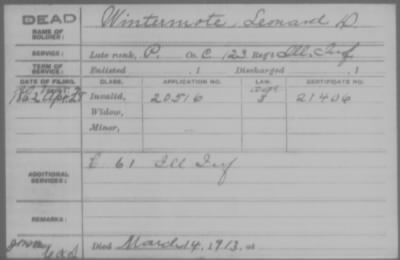 DEAD
NAME OF SOLDIER: Wintermote, Leonard D.
SERVICE: Late rank, P. Co. C. 123 Reg't Ill. Inf.
TERM OF SERVICE: Enlisted , 1 Discharged , 1
DATE OF FILING. CLASS. APPLICATION NO. LAW. CERTIFICATE NO.
Apr. 25 Invalid, 20516 21406
Widow,
Minor,
ADDITIONAL SERVICES: C 61 Ill Inf
REMARKS:
Died March 14, 1913, at